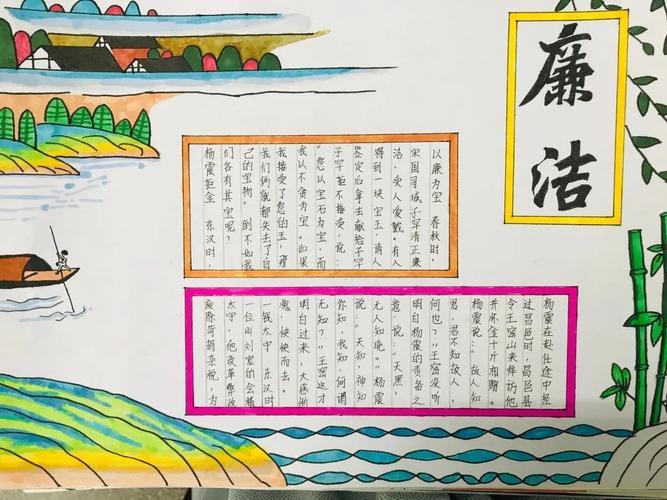 廉洁
以廉为宝 春秋时,
宋国司城子罕清正廉
洁,受人爱戴。有人
得到一块宝玉,请人
鉴定后拿去献给子罕
子罕拒不接受,说:
"您以宝石为宝,而
我以不贪为宝。如果
我接受了您的玉,
我们俩就都失去了自
己的宝物。倒不如我
们各有其宝呢?
杨震拒金 东汉时,
杨震在赴任途中经
过昌邑时,昌邑县
令王密山来拜访他
并怀金十斤相赠。
杨震说:"故人知
君,君不知故人,
何也?"王密没听
明白杨震的责备之
意,说:"天黑,
无人知晚。"杨震
说:"天知,神知
你知,我知,何谓
无知?"王密这才
明白过来,大感惭
愧,怏怏而去。
一钱太守 东汉时
一位叫刘宠的会稽
太守,他改革弊政
废除苛捐杂税,为